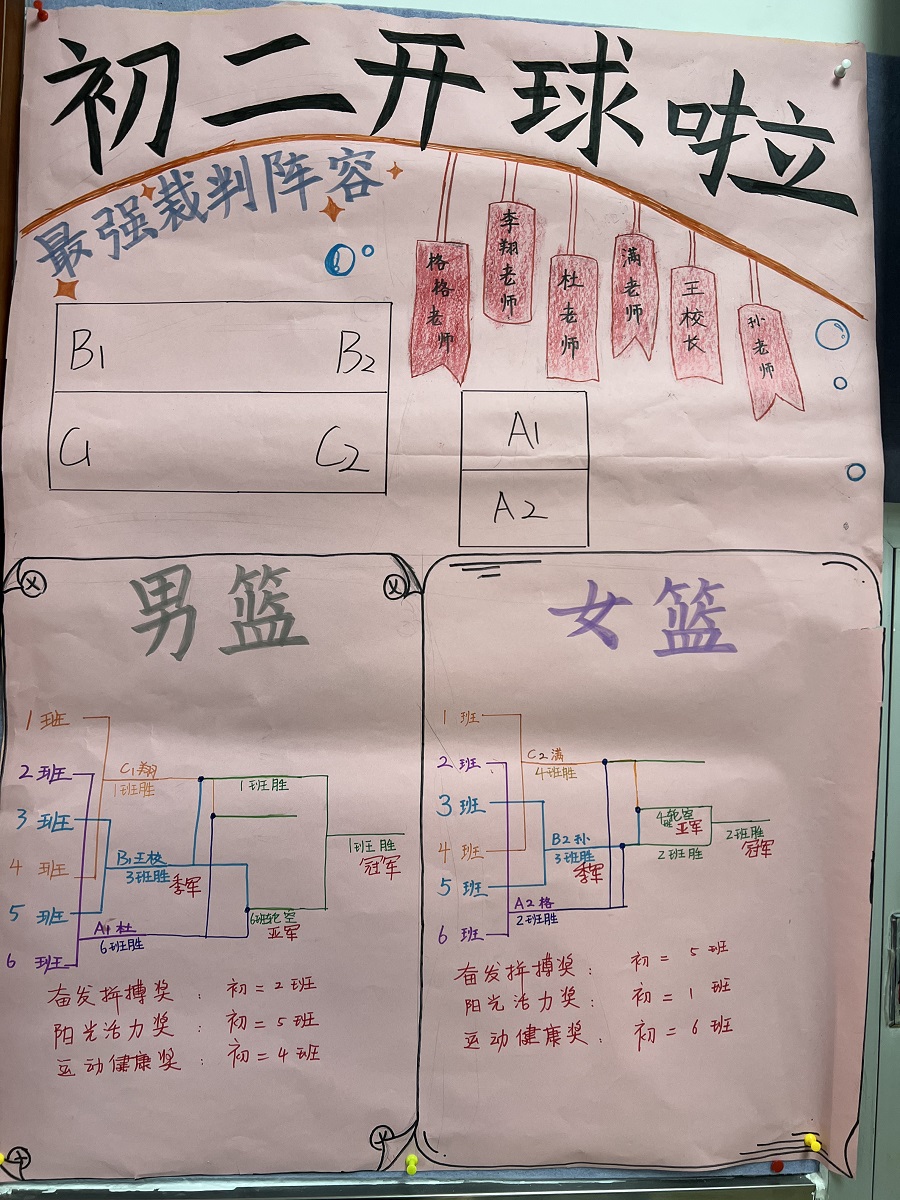 初二开球啦
最强裁判阵容
格格老师
李翔老师
杜老师
满老师
王校长
孙老师
B1 B2
C1 C2
A1
A2
男篮
1班
2班
3班
4班
5班
6班
C1翔
1班胜
B1王校
3班胜
季军
A1杜
6班胜
1班胜
6班轮空
亚军
1班胜
冠军
奋发拼搏奖：初二2班
阳光活力奖：初二5班
运动健康奖：初二4班
女篮
1班
2班
3班
4班
5班
6班
C2满
4班胜
B2孙
3班胜
季军
A2格
2班胜
4班轮空
亚军
2班胜
2班胜
冠军
奋发拼搏奖：初二5班
阳光活力奖：初二1班
运动健康奖：初二6班